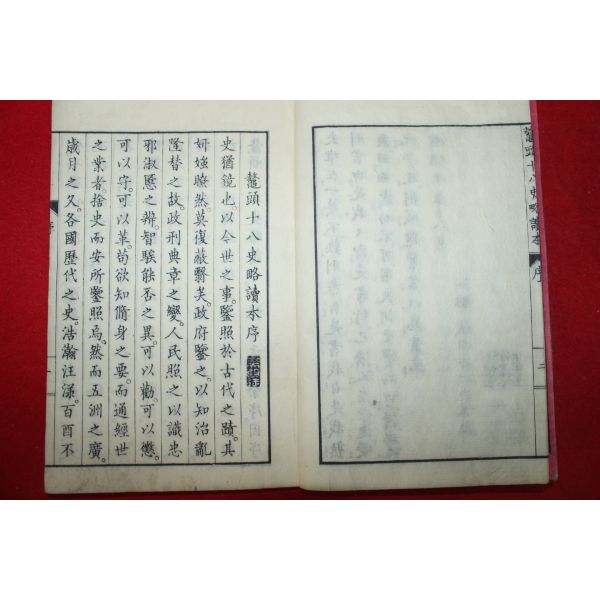 鼇頭十八史略讀本序
史猶鏡也。以今世之事。鑒照於古代之蹟。其
妍媸瞭然莫復蔽翳矣。政府鑒之。以知治亂
隆替之故。政刑典章之變。人民照之以識忠
邪淑慝之辨。智騃能否之異。可以勸。可以懲。
可以守。可以革。苟欲知脩身之要。而通經世
之業者。捨史而安所鑒照焉。然而五洲之廣。
歲月之久。各國歷代之史。浩瀚汪濊。百酉不
鼇頭十八史略讀本
序
二
序
一